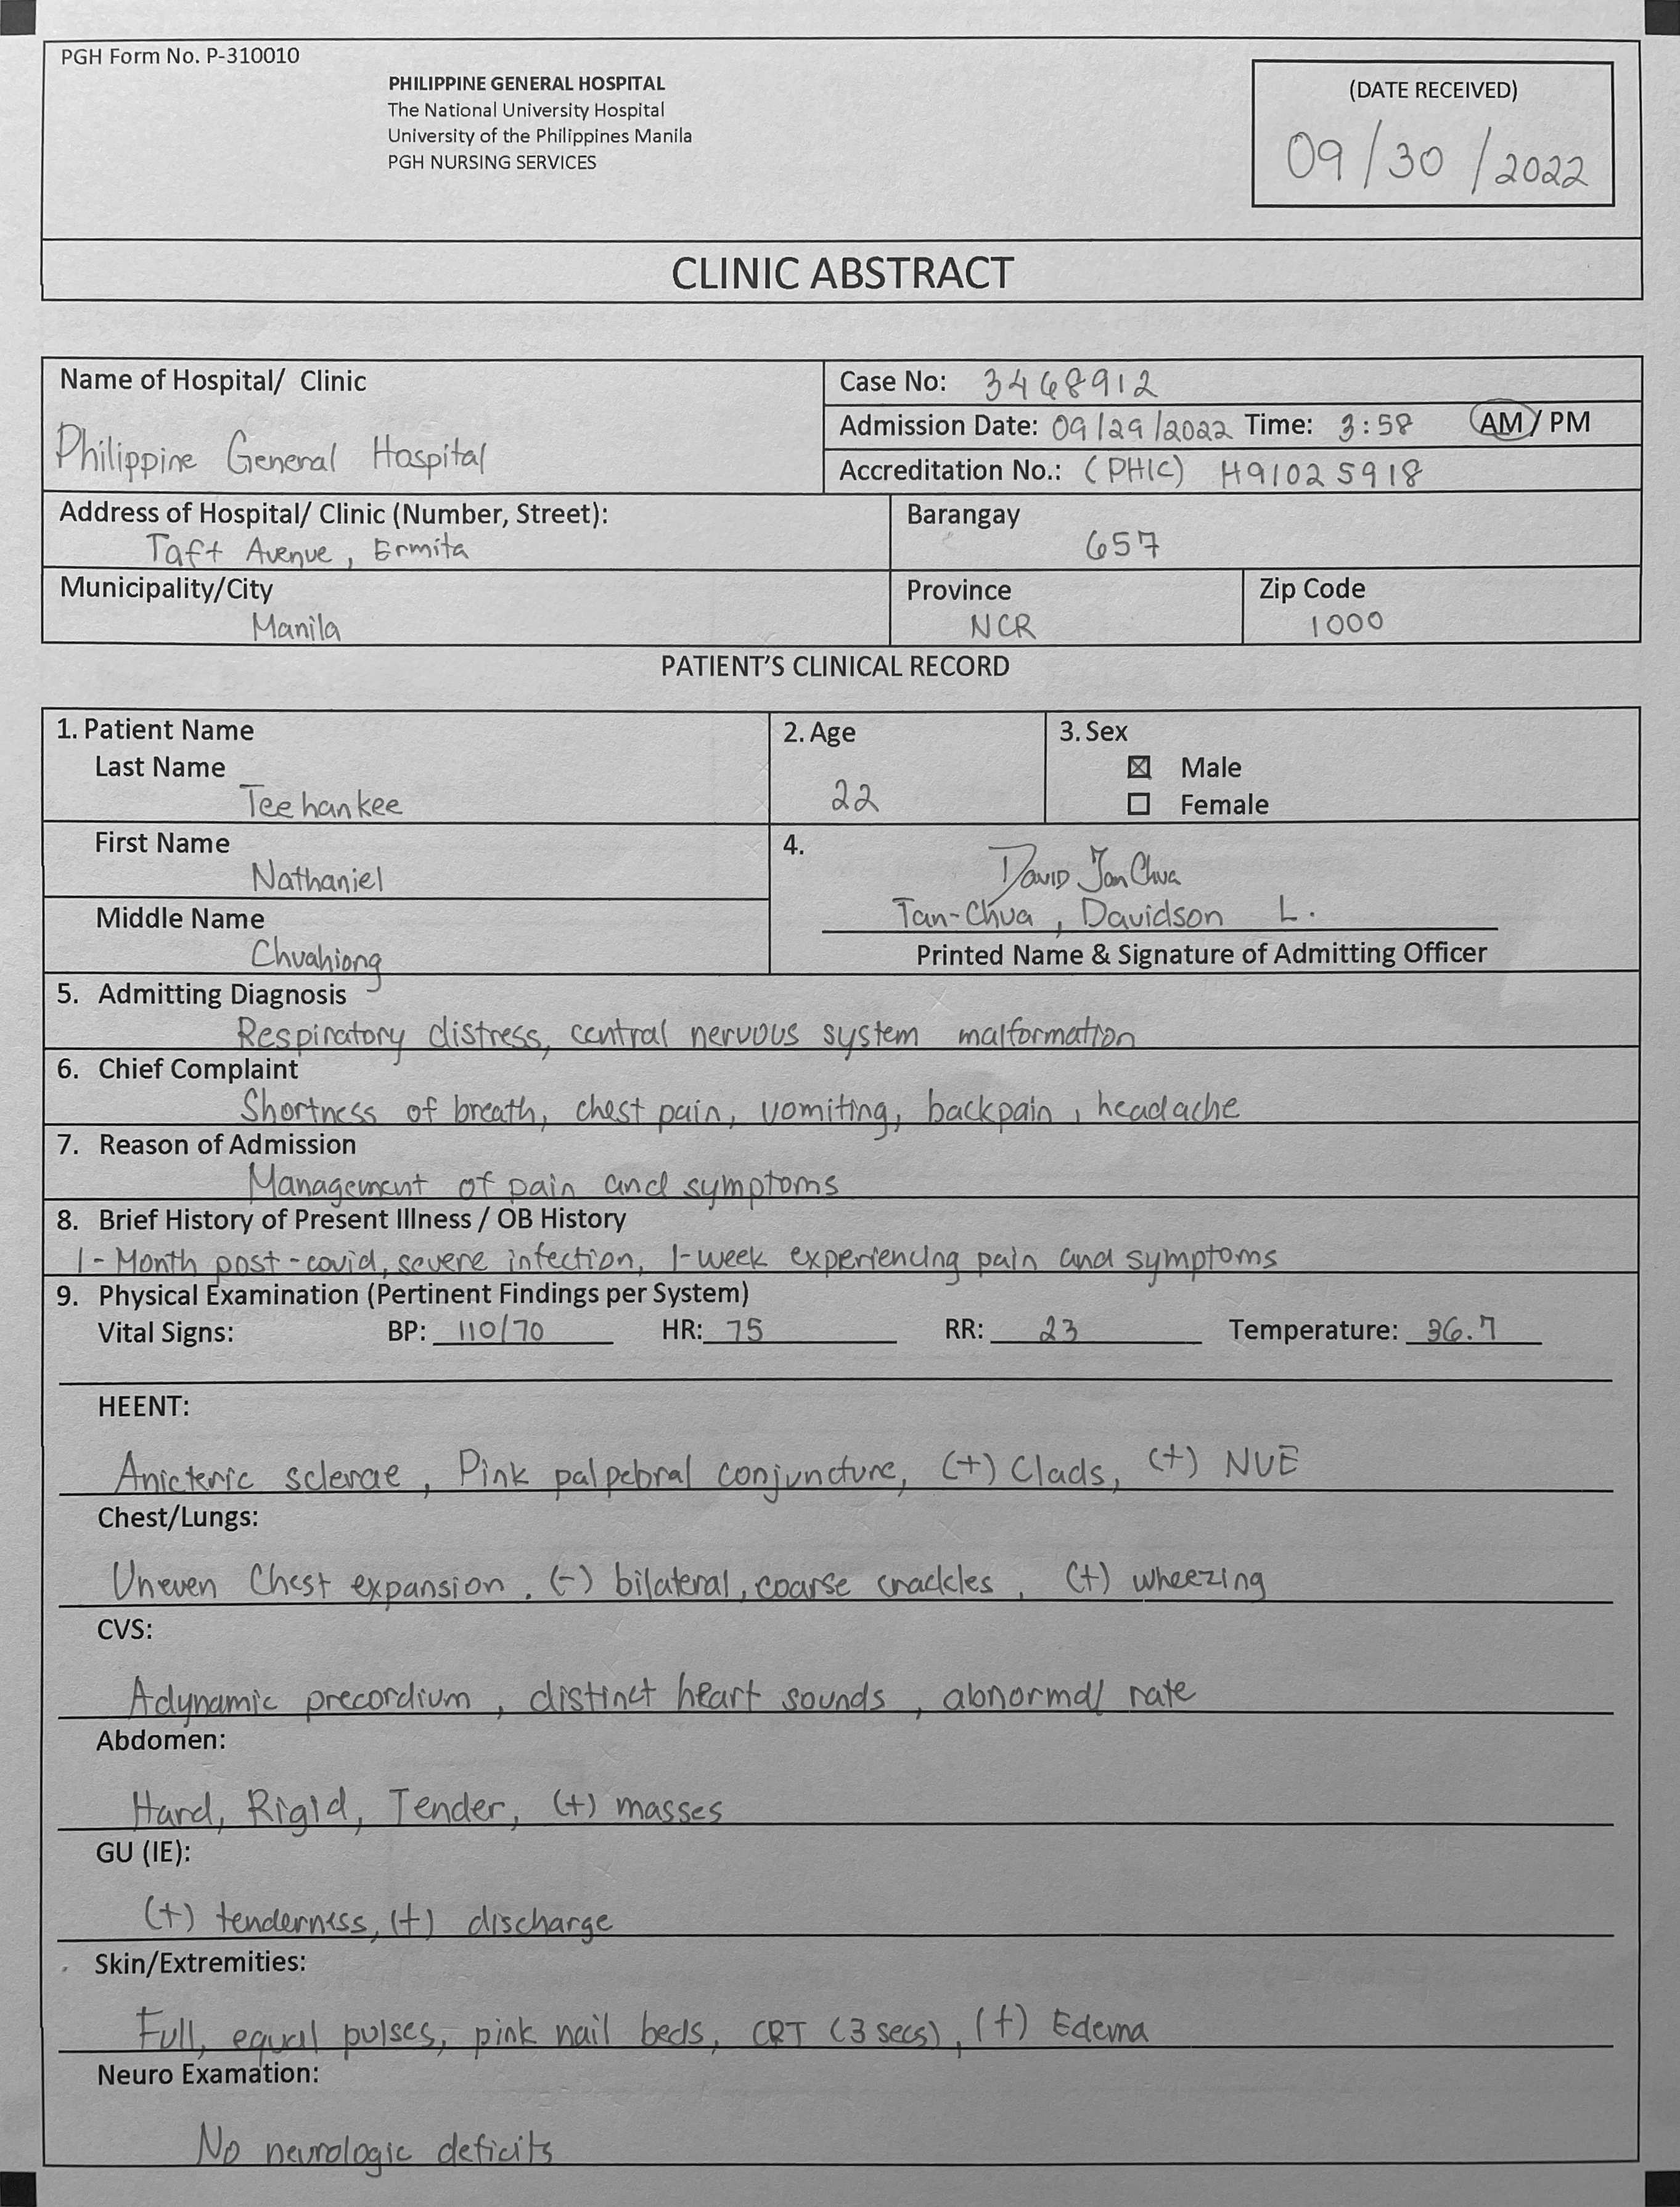 PGH Form No. P-310010
PHILIPPINE GENERAL HOSPITAL
The National University Hospital
University of the Philippines Manila
PGH NURSING SERVICES
(DATE RECEIVED)
09/30/2022
CLINIC ABSTRACT
Name of Hospital/ Clinic
Philippine General Hospital
Case No: 3468912
Admission Date: 09/29/2022 Time: 3:58 AM / PM
Accreditation No.: (PHIC) H91025918
Address of Hospital/ Clinic (Number, Street):
Taft Avenue, Ermita
Barangay
657
Municipality/City
Manila
Province
NCR
Zip Code
1000
PATIENT'S CLINICAL RECORD
1. Patient Name
Last Name
Teehankee
2. Age
22
3. Sex
Male
Female
First Name
Nathaniel
Middle Name
Chuahiong
4.
David TanChua
Tan-Chua, Davidson L.
Printed Name & Signature of Admitting Officer
5. Admitting Diagnosis
Respiratory distress, central nervous system malformation
6. Chief Complaint
Shortness of breath, chest pain, vomiting, backpain, headache
7. Reason of Admission
Management of pain and symptoms
8. Brief History of Present Illness / OB History
1-Month post-covid, severe infection, 1-week experiencing pain and symptoms
9. Physical Examination (Pertinent Findings per System)
Vital Signs: BP: 110/70 HR: 75 RR: 23 Temperature: 36.7
HEENT:
Anicteric sclerae, Pink palpebral conjuncture, (+) Clads, (+) NUE
Chest/Lungs:
Uneven Chest expansion, (-) bilateral, coarse crackles, (+) wheezing
CVS:
Adynamic precordium, distinct heart sounds, abnormal rate
Abdomen:
Hard, Rigid, Tender, (+) masses
GU (IE):
(+) tenderness, (+) discharge
Skin/Extremities:
Full, equal pulses, pink nail beds, CRT (3 secs), (+) Edema
Neuro Examation:
No neurologic deficits